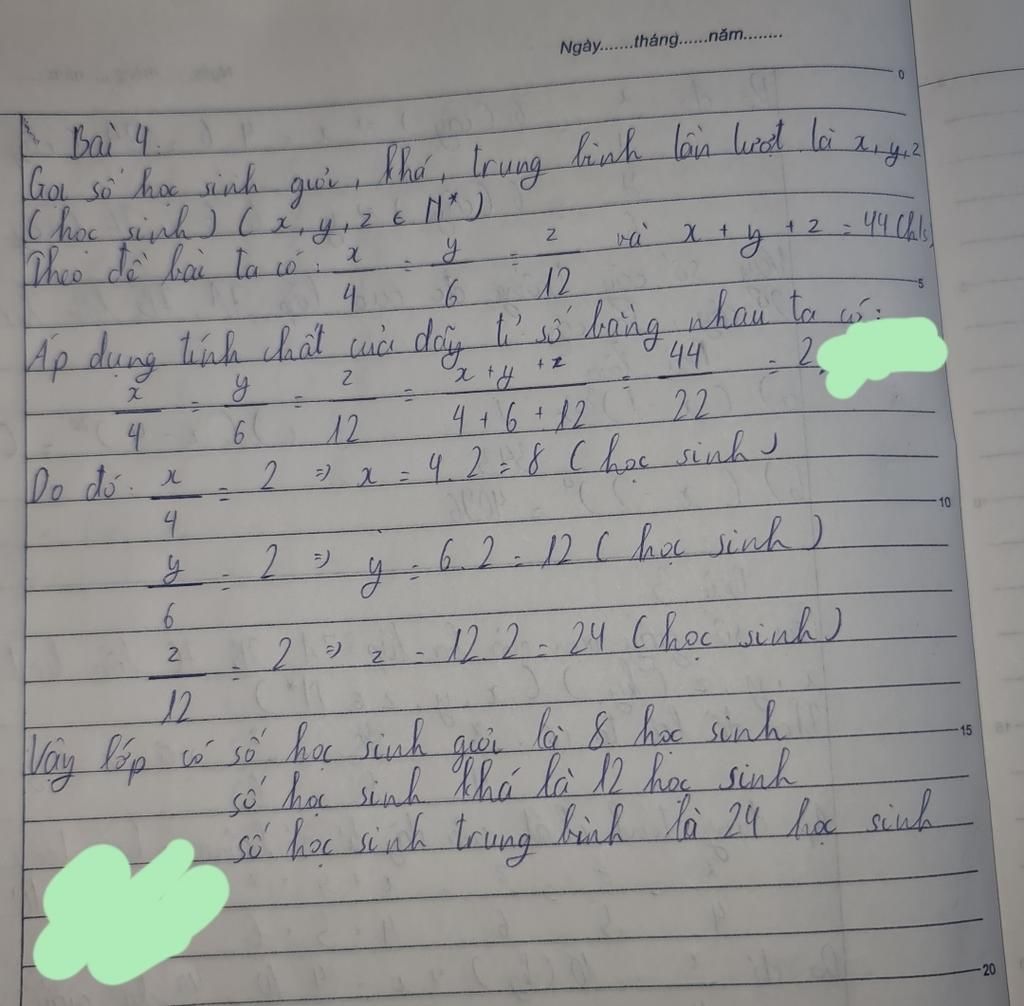 Ngày.......tháng......năm........
0
Bài 4.
Gọi số học sinh giỏi, khá, trung bình lần lượt là x, y, z
(học sinh) (x, y, z ∈ N*)
Theo đề bài ta có: x/4 = y/6 = z/12 và x + y + z = 44 (hs)
5
Áp dụng tính chất của dãy tỉ số bằng nhau ta có:
x/4 = y/6 = z/12 = (x + y + z)/(4 + 6 + 12) = 44/22 = 2
Do đó: x/4 = 2 => x = 4.2 = 8 (học sinh)
10
y/6 = 2 => y = 6.2 = 12 (học sinh)
z/12 = 2 => z = 12.2 = 24 (học sinh)
Vậy lớp có số học sinh giỏi là 8 học sinh
15
số học sinh khá là 12 học sinh
số học sinh trung bình là 24 học sinh
20